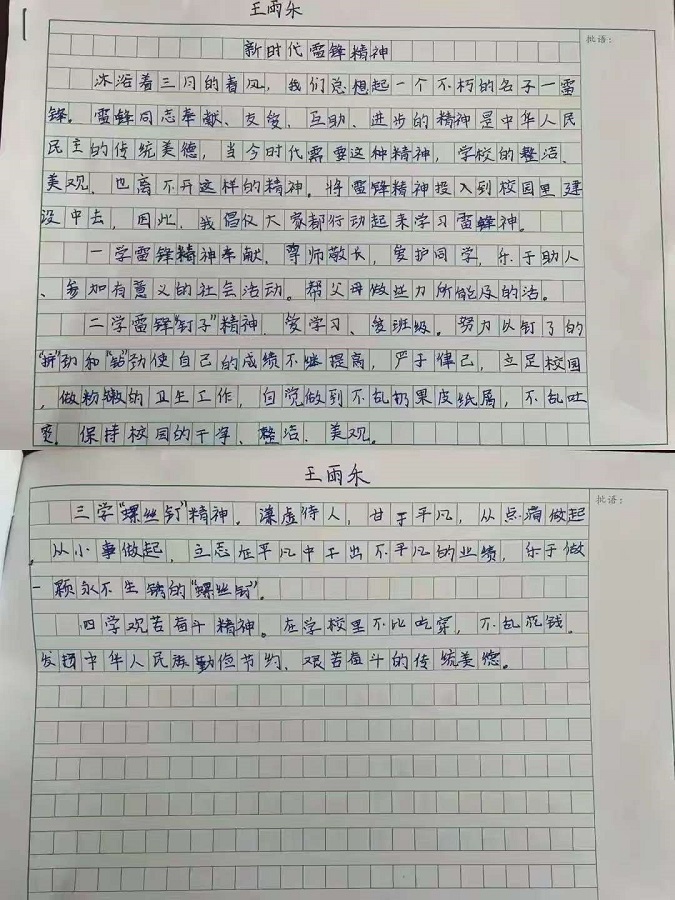 王雨乐
批语：
新时代雷锋精神
沐浴着三月的春风，我们总想起一个不朽的名子一雷
锋。雷锋同志奉献、友爱、互助、进步的精神是中华人民
民主的传统美德，当今时代需要这种精神，学校的整洁、
美观，也离不开这样的精神。将雷锋精神投入到校园里建
设中去，因此，我倡仪大家都行动起来学习雷锋神。
一学雷锋精神奉献、尊师敬长，爱护同学，乐于助人
、参加有意义的社会活动。帮父母做些力所能及的活。
二学雷锋"钉子"精神，爱学习、爱班级。努力以钉了的
"挤"劲和"钻"劲使自己的成绩不继提高，严于律己，立足校园
，做粉嫩的卫生工作，自觉做到不乱扔果皮纸屑，不乱吐
保持校园的干净、整洁、美观。
王雨乐
批语：
三学"螺丝钉"精神。谦虚待人，甘于平凡，从点滴做起
，从小事做起，立志在平凡中干出不平凡的业绩，乐于做
一颗永不生锈的"螺丝钉"。
四学艰苦奋斗精神。在学校里不比吃穿，不乱花钱。
发扬中华人民族勤俭节约、艰苦奋斗的传统美德。